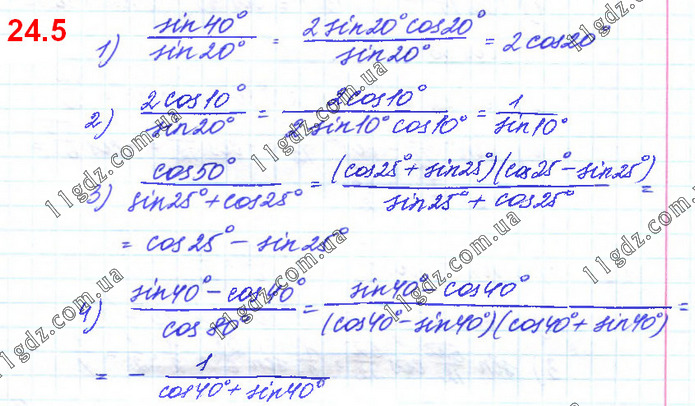 24.5
1) sin40°/sin20° = 2sin20°cos20°/sin20° = 2cos20°
2) 2cos10°/sin20° = 2cos10°/2sin10°cos10° = 1/sin10°
3) cos50°/sin25°+cos25° = (cos25°+sin25°)(cos25°-sin25°)/sin25°+cos25° =
= cos25°-sin25°
4) sin40°-cos40°/cos80° = sin40°-cos40°/(cos40°-sin40°)(cos40°+sin40°) =
= - 1/cos40°+sin40°
11gdz.com.ua
11gdz.com.ua
11gdz.com.ua
11gdz.com.ua
11gdz.com.ua
11gdz.com.ua